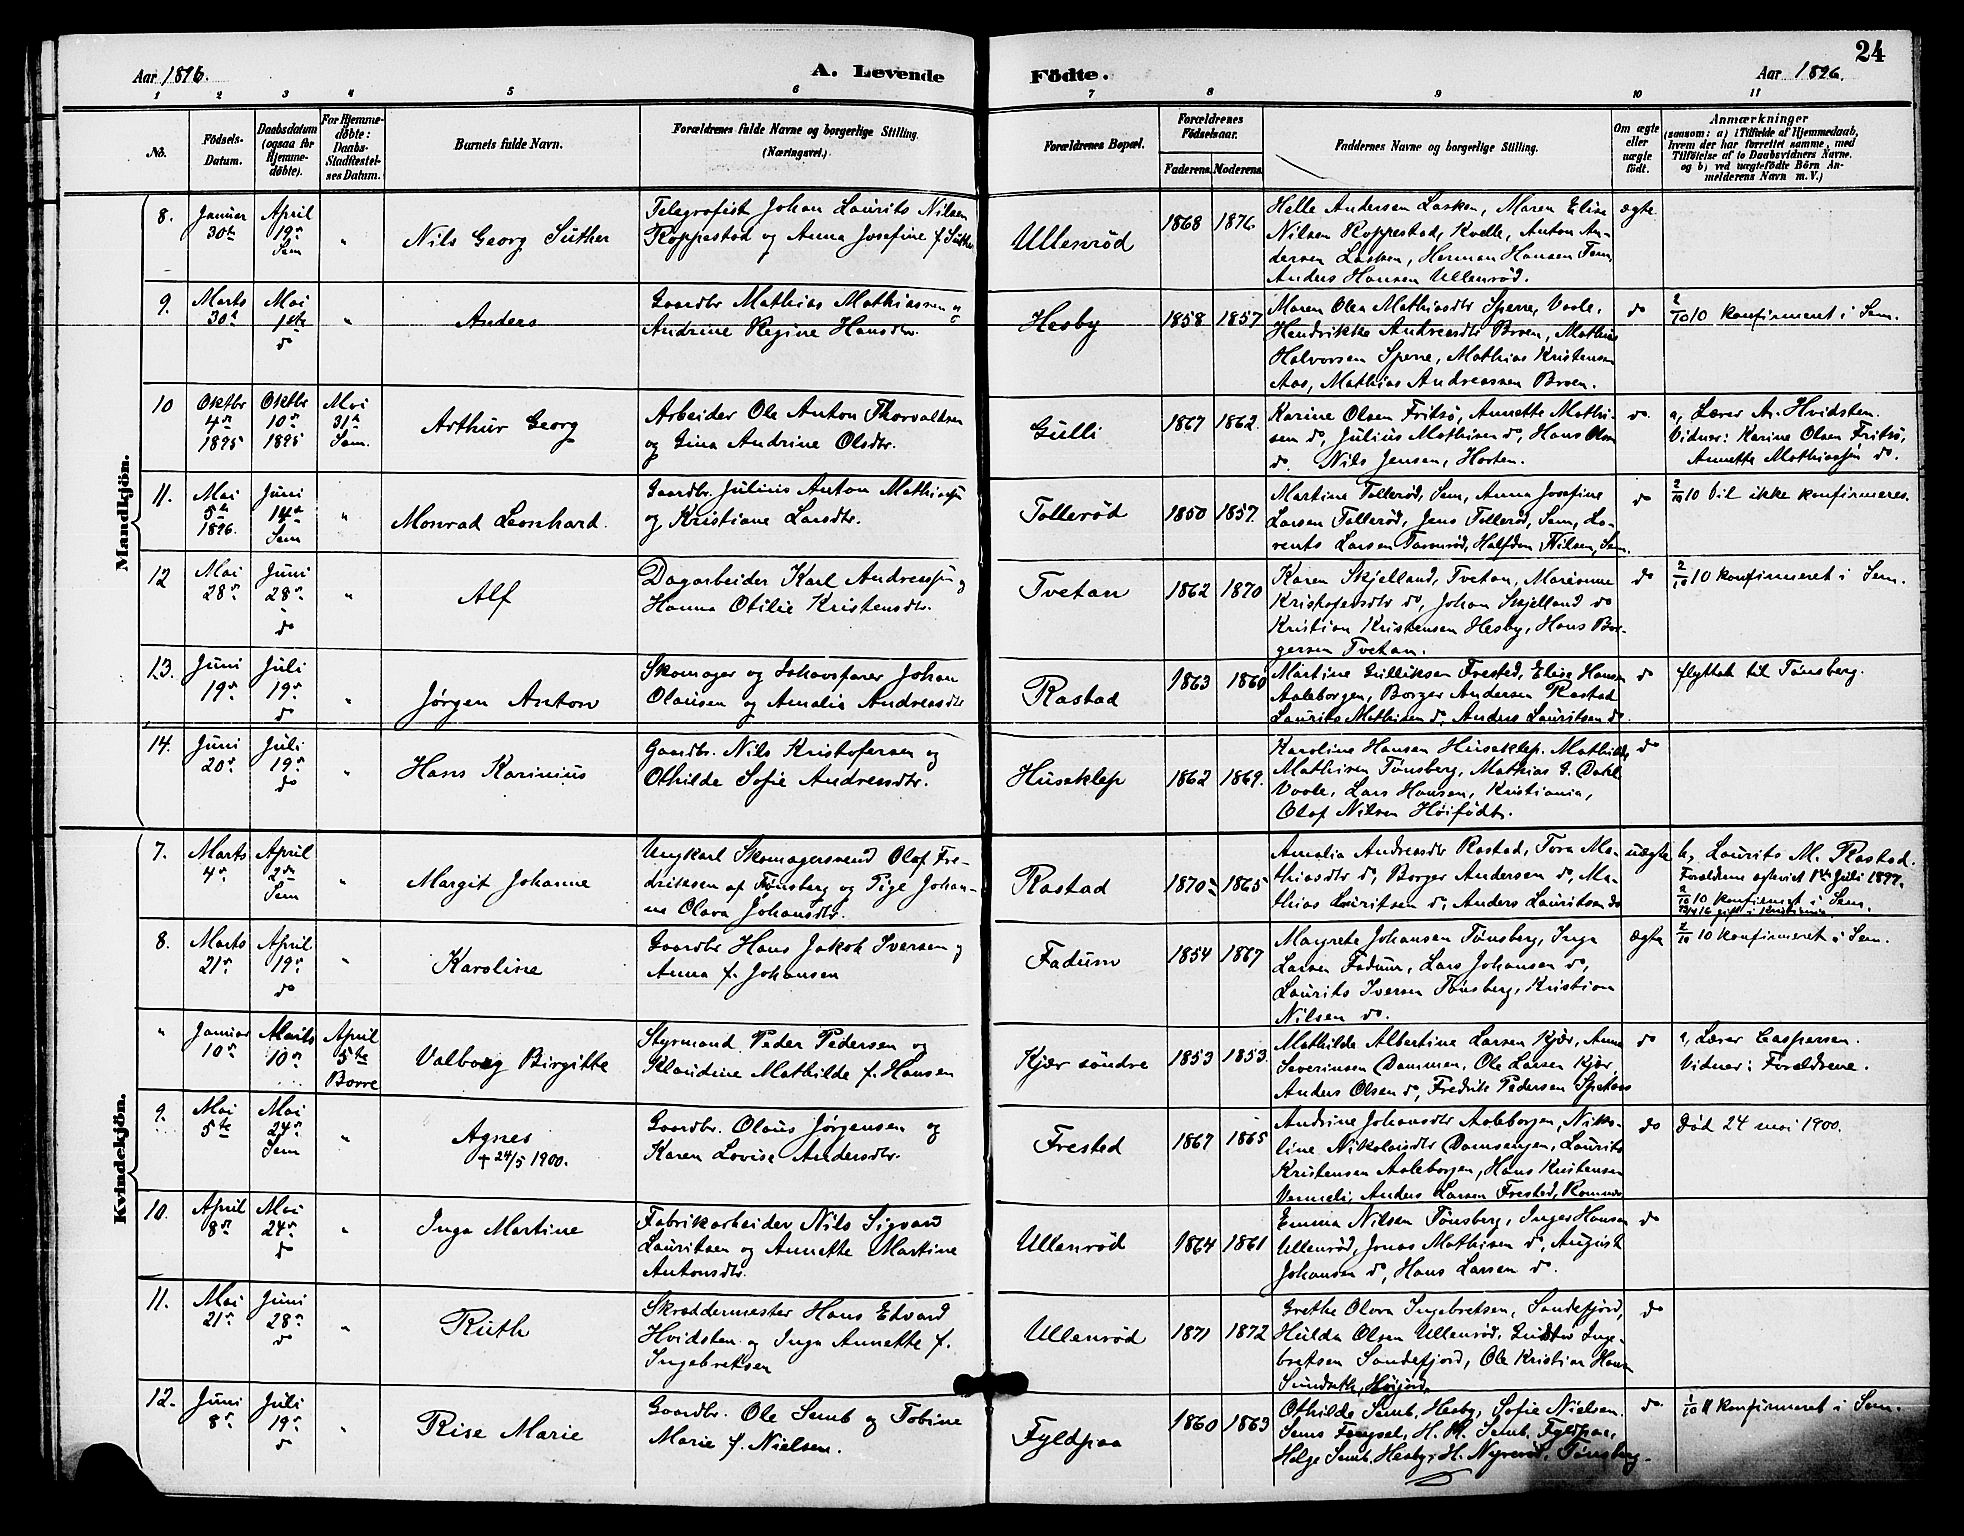 24
Aar 1896.
A. Levende
Födte.
Aar 1896.
1 2 3 4 5 6 7 8 9 10 11
No.
Födsels-
Datum.
Daabsdatum
(ogsaa for
Hjemme-
döbte).
For Hjemme-
döbte:
Daabs-
Stadfæstel-
ses Datum.
Barnets fulde Navn.
Forældrenes fulde Navne og borgerlige Stilling.
(Næringsvei.)
Forældrenes Bopæl.
Forældrenes
Födselsaar.
Faderens. Moderens.
Faddernes Navne og borgerlige Stilling.
Om ægte
eller
uægte
födt.
Anmærkninger
(saasom: a) i Tilfælde af Hjemmedaab,
hvem der har forrettet samme, med
Tilföielse af to Daabsvidners Navne,
og b) ved uægtefödte Börn An-
melderens Navn m. V.)
Mandkjön.
8.
Januar
30te
April
19de
Sem
"
Nils Georg Suther
Telegrafist Johan Laurits Nilsen
Roppestad og Anna Josefine f. Suther
Ullenrød
1868
1876
Helle Andersen Lasken, Maren Elise
Nilsen Roppestad, Kvelle, Anton An-
dersen Lasken, Herman Hansen Fem
Anders Hansen Ullenrød.
ægte
9.
Marts
30te
Mai
1ste
do
"
Anders
Gaardbr Mathias Mathiassen og
Andrine Regine Hansdtr.
Hesby
1858
1857
Maren Olea Mathiasdtr Sperre, Vaale,
Hendrikke Andreasdtr Broen, Mathias
Halvorsen Sperre, Mathias Kristensen
Aas, Mathias Andreassen Broen.
do
2/10 10 konfirmeret i Sem.
10
Oktbr
4de
1895
Oktbr
10de
1895
Mai
31te
Sem.
Arthur Georg
Arbeider Ole Anton Thorvaldsen
og Gina Andrine Olsdtr.
Gulli
1867
1862.
Karine Olsen Fritsø, Annette Mathi-
sen do, Julius Mathisen do, Hans Olsen
do. Nils Jensen, Horten.
do.
a, Lærer A. Hvidsten.
Vidner: Karine Olsen Fritsø,
Annette Mathiassen do.
11.
Mai
5te
1896.
Juni
14de
Sem
"
Monrad Leonhard.
Gaardbr. Julius Anton Mathiassen
og Kristiane Larsdtr.
Tollerød
1850
1857.
Martine Tollerød, Sem, Anna Josefine
Larsen Tollerød, Jens Tollerød, Sem, Lo-
rents Larsen Tamrød, Halfdan Nilsen, Sem.
do
2/10 10 Vil ikke konfirmeres.
12
Mai
28de
Juni
28de
do
"
Alf
Dagarbeider Karl Andreassen og
Hanna Otilie Kristensdtr.
Tvetan
1862
1870
Karen Skjelland, Tvetan, Marianne
Kristofersdtr do, Johan Skjelland do
Kristian Kristensen Hesby, Hans Bor-
gersen Tvetan.
do
2/10 10 konfirmeret i Sem.
13.
Juni
19de
Juli
19de
do
"
Jørgen Anton
Skomager og Ishavsfarer Johan
Olausen og Amalie Andreasdtr
Rastad
1863
1860
Martine Gulliksen Frested, Elise Hansen
Aaleborgen, Borger Andersen Rastad
Laurits Mathisen do, Anders Lauritsen do.
do
flyttet til Tønsberg.
14.
Juni
20de
Juli
19de
do
"
Hans Karinius
Gaardbr. Nils Kristofersen og
Othilde Sofie Andreasdtr.
Huseklep
1862
1869.
Karoline Hansen Huseklep. Mathilde
Mathisen Tønsberg, Mathias G. Dahl
Vaale, Lars Hansen, Kristiania,
Olaf Nilsen Høifødt.
do
Kvindekjön.
7.
Marts
4de
April
2den
Sem
"
Margit Johanne
Ungkarl Skomagersvend Olaf Fre-
driksen af Tønsberg og Pige Johan-
ne Olava Johansdtr.
Rastad
1870
1865
Amalia Andreasdtr Rastad, Tora Ma-
thiasdtr do, Borger Andersen do, Ma-
thias Lauritsen do, Anders Lauritsen do
uægte
b, Laurits M. Rastad.
Forældrene egteviet 1ste Juli 1897.
2/10 10 konfirmeret i Sem.
16 gift i Kristiania
8.
Marts
21de
April
19de
do
"
Karoline
Gaardbr Hans Jakob Iversen og
Anna f. Johansen
Fadum
1854
1867
Margrete Johansen Tønsberg, Inga
Larsen Fadum, Lars Johansen do,
Laurits Iversen Tønsberg, Kristian
Nilsen do.
ægte
2/10 10 konfirmeret i Sem.
"
Januar
10de
Marts
10de
April
5te
Borre
Valborg Birgitte
Styrmand Peder Pedersen og
Klaudine Mathilde f. Hansen
Kjær søndre
1853
1853.
Mathilde Albertine Larsen Kjær, Anne
Severinsen Dammen, Ole Larsen Kjær,
Anders Olsen do, Fredrik Pedersen
do
a, Lærer Caspersen.
Vidner: Forældrene.
9.
Mai
5te
Mai
24de
Sem
"
Agnes
+ 24/5 1900.
Gaardbr. Olaus Jørgensen og
Karen Lovise Andersdtr.
Frested
1867
1865
Andrine Johansdtr Aaleborgen, Niko-
line Nikolaisdtr Damsengen, Laurits
Kristensen Aaleborgen, Hans Kristensen
Vermeli, Anders Larsen Frested, Ramnes
do
Død 24 mai 1900.
10.
April
8de
Mai
24de
do
"
Inga Martine
Fabrikarbeider Nils Sigvard
Lauritsen og Annette Martine
Antonsdtr.
Ullenrød
1864
1861
Emma Nilsen Tønsberg, Inger Hansen
Ullenrød, Jonas Mathisen do, August
Johansen do, Hans Larsen do.
do
11.
Mai
21de
Juni
28de
do
"
Ruth
Skræddermester Hans Edvard
Hvidsten og Inga Annette f.
Ingebretsen
Ullenrød
1871
1872
Grethe Olava Ingebretsen, Sandefjord,
Hulda Olsen Ullenrød, Gustav Inge-
bretsen Sandefjord, Ole Kristian Hansen
Sundseth, Høijord.
do
12.
Juni
8de
Juli
19de
do
"
Rise Marie
Gaardbr. Ole Semb og Tobine
Marie f. Nielsen.
Fyldpaa
1860
1863
Othilde Semb, Hesby, Sofie Nielsen.
Sems Fengsel, H. M. Semb, Fyldpaa,
Helge Semb, Hesby, H. Nyrerød, Tønsberg.
do.
1/10 11 konfirmeret i Sem.